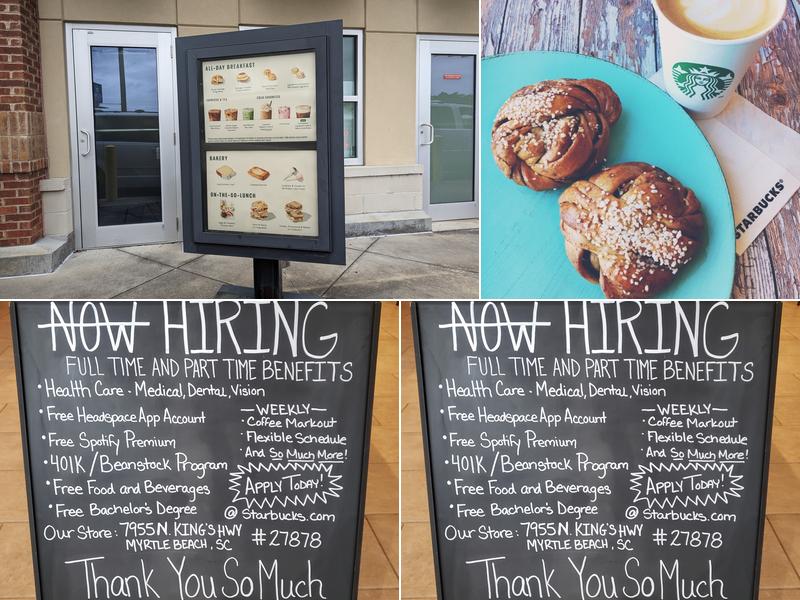 ALL-DAY BREAKFAST
BAKERY
ON-THE-GO-LUNCH
STARBUCKS®
NOW HIRING
FULL TIME AND PART TIME BENEFITS
• Health Care - Medical, Dental, Vision
• Free Headspace App Account
• Free Spotify Premium
• 401K / Beanstock Program
• Free Food and Beverages
• Free Bachelor's Degree
— WEEKLY —
· Coffee Markout
· Flexible Schedule
· And So Much More!
APPLY TODAY!
@ Starbucks.com
Our Store: 7955 N. KING'S HWY
MYRTLE BEACH, SC
#27878
Thank You So Much
NOW HIRING
FULL TIME AND PART TIME BENEFITS
• Health Care - Medical, Dental, Vision
• Free Headspace App Account
• Free Spotify Premium
• 401K / Beanstock Program
• Free Food and Beverages
• Free Bachelor's Degree
— WEEKLY —
· Coffee Markout
· Flexible Schedule
· And So Much More!
APPLY TODAY!
@ Starbucks.com
Our Store: 7955 N. KING'S HWY
MYRTLE BEACH, SC
#27878
Thank You So Much